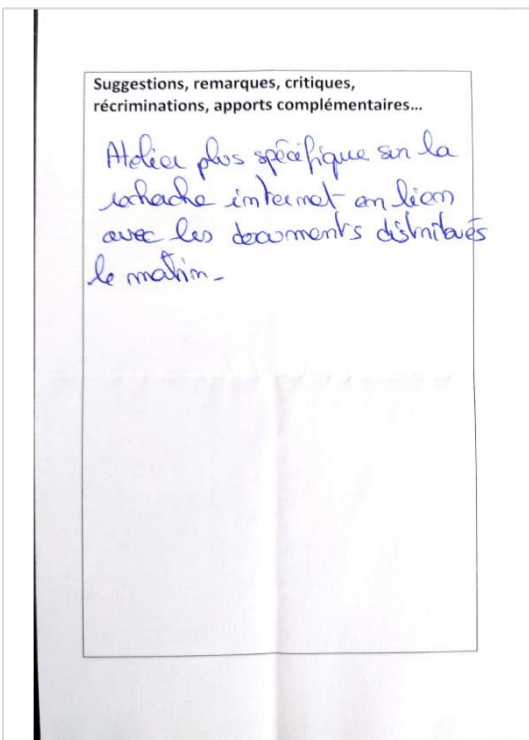 Suggestions, remarques, critiques,
récriminations, apports complémentaires...
Atelier plus spécifique sur la
recherche internet en lien
avec les documents distribués
le matin.